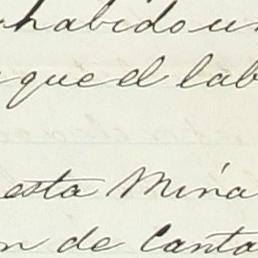 habido un
que el lab
esta Mina
n de Canta